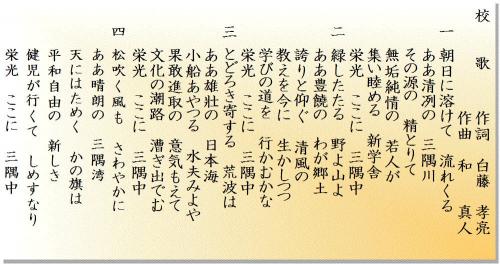 校　歌　作詞　白藤　孝亮
作曲　和　真人
一　朝日に溶けて　流れくる
ああ清冽の　三隅川
その源の　精とりて
無垢純情の　若人が
集い睦める　新学舎
栄光　ここに　三隅中
二　緑したたる　野よ山よ
ああ豊饒の　わが郷土
誇りと仰ぐ　清風の
教えを今に　生かしつつ
学びの道を　行かむかな
栄光　ここに　三隅中
三　とどろき寄する　荒波は
ああ雄壮の　日本海
小船あやつる　水夫みよや
果敢進取の　意気もえて
文化の潮路　漕ぎ出でむ
栄光　ここに　三隅中
四　松吹く風も　さわやかに
ああ晴朗の　三隅湾
天にはためく　かの旗は
平和自由の　新しさ
健児が行くて　しめすなり
栄光　ここに　三隅中